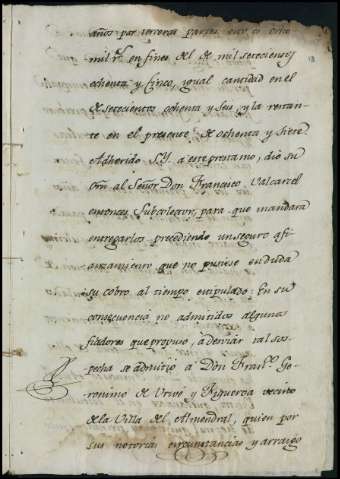 años por terceras partes esto es ocho
mil r.^s en fines del de mil setecientos
ochenta y Cinco, igual cantidad en el
de setecientos ochenta y Seis, y la restan-
te en el presente de ochenta y Siete
Adherido S.Y. a este prestamo, dio su
Orn al Señor Don Francisco Valcarcel
entonces Subcolector, para que mandara
entregarlos precediendo un seguro afi-
anzamiento que no pusiese en duda
su cobro al tiempo estipulado: En su
consecuencia no admitidos algunos
fiadores que propuso, a desviar tal sos-
pecha se admitio a Don Fran.^co Ge-
ronimo de Uribe y Figueroa vecino
de la Villa del Almendral, quien por
sus notorias circunstancias y arraigo